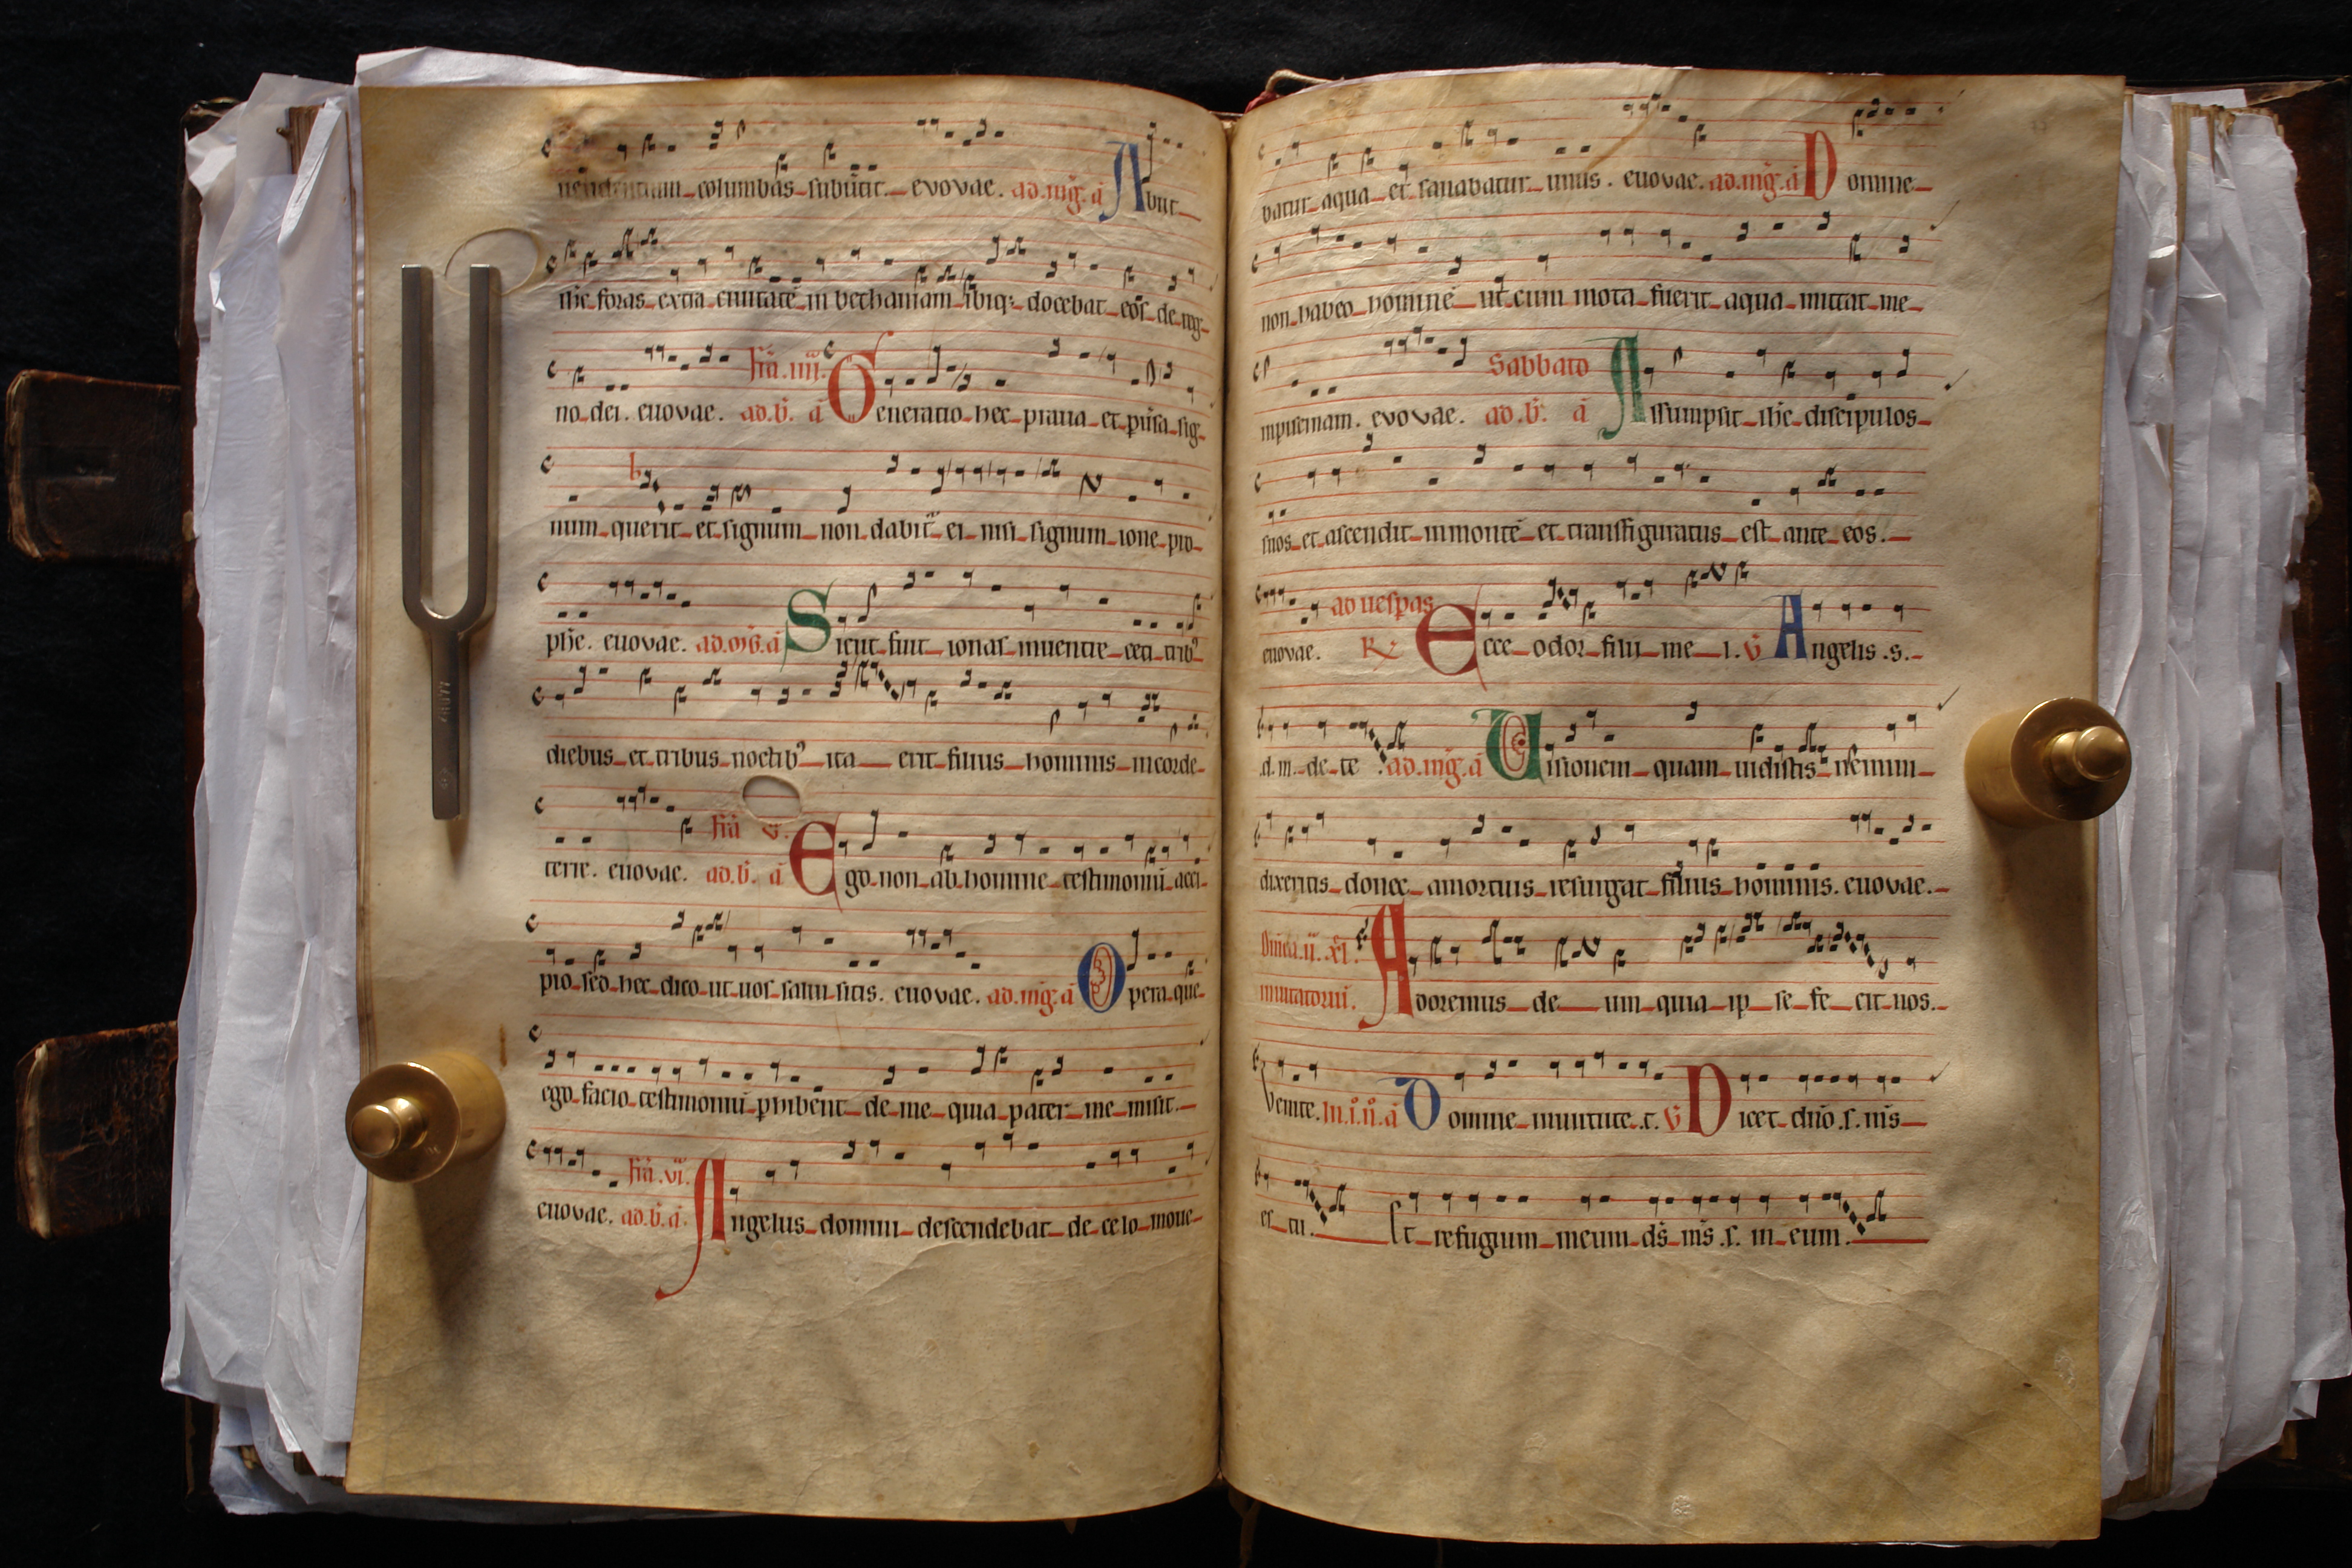 uendentium columbas subūtit. evovae. ad.mḡ.ā Abiit
ihc foras extra ciuitatē in bethaniam ibiq; docebat eos de reg
no dei. euovae. ad.b̄. ā
fīa .iiii. Generatio hec praua et pūsa sig
num querit et signum non dabit̄ ei nisi signum ione pro
phe. euovae. ad.mḡ.ā Sicut fuit ionas inuentre ceti trib9
diebus et tribus noctib9 ita erit filius hominis in corde
terre. euovae. ad.b̄. ā
fīa v. Ego non ab homine testimoniū acci
pio sed hec dico ut uos salui sitis. euovae. ad.mḡ.ā Opera que
ego facio testimoniū phibent de me quia pater me misit.
euovae. ad.b̄.ā.
fīa .vi. Angelus domini descendebat de celo moue
batur aqua et sanabatur unus. euovae. ad.mḡ.ā Domine
non habeo hominē ut cum mota fuerit aqua mittat me
inpiscinam. evovae. ad.b̄. ā
Sabbato Assumpsit ihc discipulos
suos et ascendit inmontē et transfiguratus est ante eos.
euovae.
ad uesp̄as
R Ecce odor filii me i. V̄ Angelis .s.
.d. m. de te. ad.mḡ.ā Uisionem quam uidistis nemini
dixeritis donec amortuis resurgat filius hominis. euovae.
Dn̄ica .ii. xl.
inuitatoriū. Adoremus de um quia ip se fe cit nos.
Venite. In.i.n̊.ā Domine inuirtute .t. V̄ Dicet dn̄o .s. m̄s
es tu. Et refugium meum ds̄ ms̄ .s. m eum.